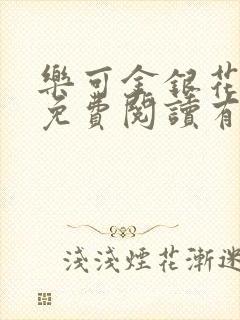 樂可金銀花
免費閱讀有
淺淺煙花漸迷